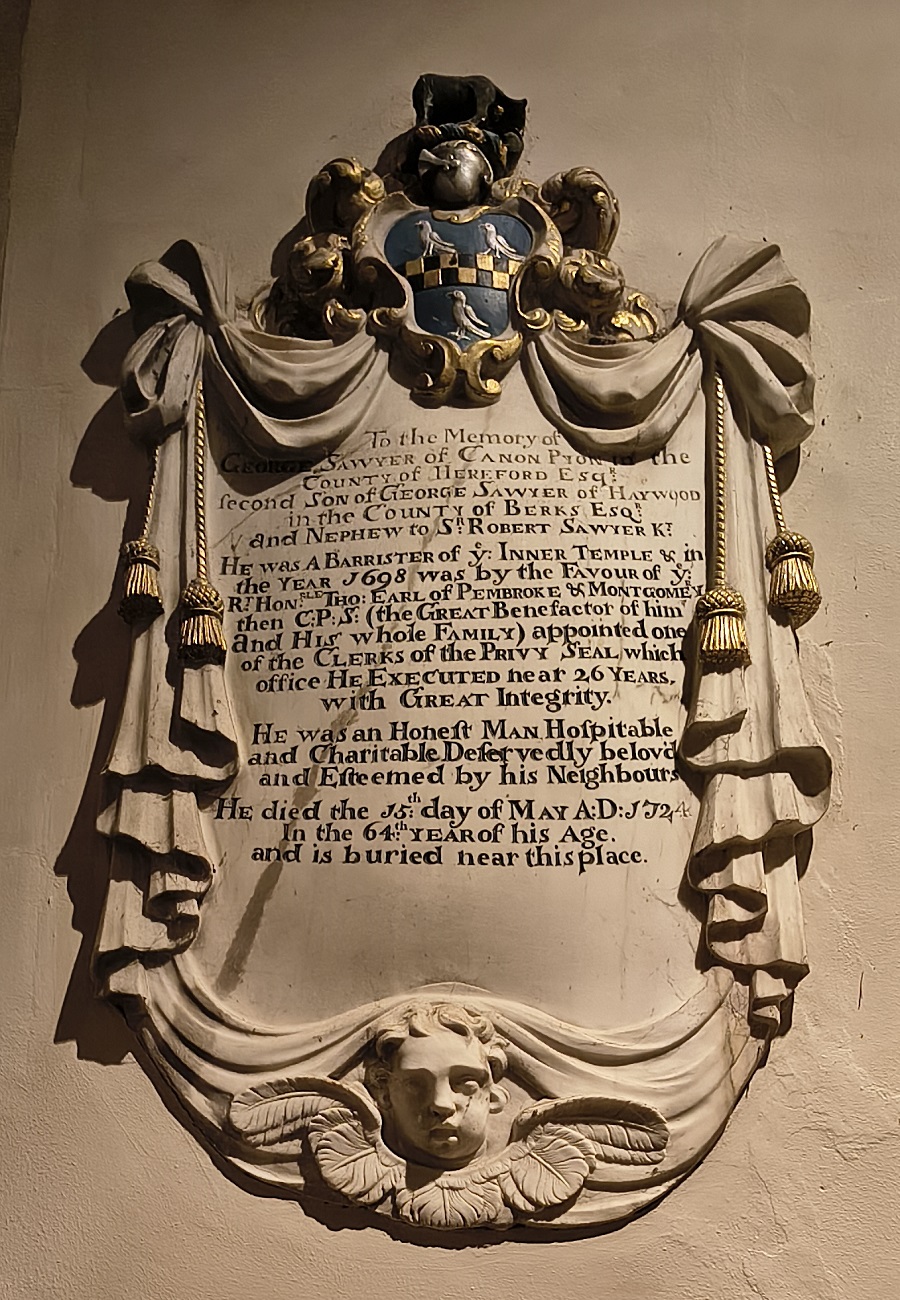 To the Memory of
GEORGE SAWYER of CANON PYON in the
COUNTY of HEREFORD ESQ.R
second SON of GEORGE SAWYER of HAYWOOD
in the COUNTY of BERKS ESQ.R
and NEPHEW to S.R ROBERT SAWYER K.T
HE was A BARRISTER of y.e INNER TEMPLE & in
the YEAR 1698 was by the FAVOUR of y.e
R.T HON.BLE THO: EARL of PEMBROKE & MONTGOMEY
then C:P:S: (the GREAT Benefactor of him
and HIS whole FAMILY) appointed one
of the CLERKS of the PRIVY SEAL which
office HE EXECUTED near 26 YEARS,
with GREAT Integrity.
HE was an Honeſt MAN Hoſpitable
and Charitable Deſervedly belov'd
and Eſteemed by his Neighbours
HE died the 15:th day of MAY A:D: 1724
In the 64:th YEAR of his Age.
and is buried near this place.